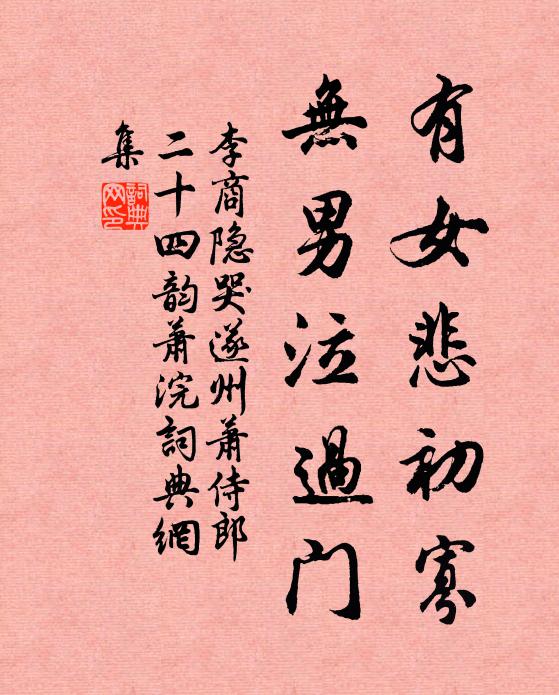 有女悲初寡
無男泣過门
李商隐哭遂州萧侍郎
二十四韵萧浣詞典網
集
詞典网印